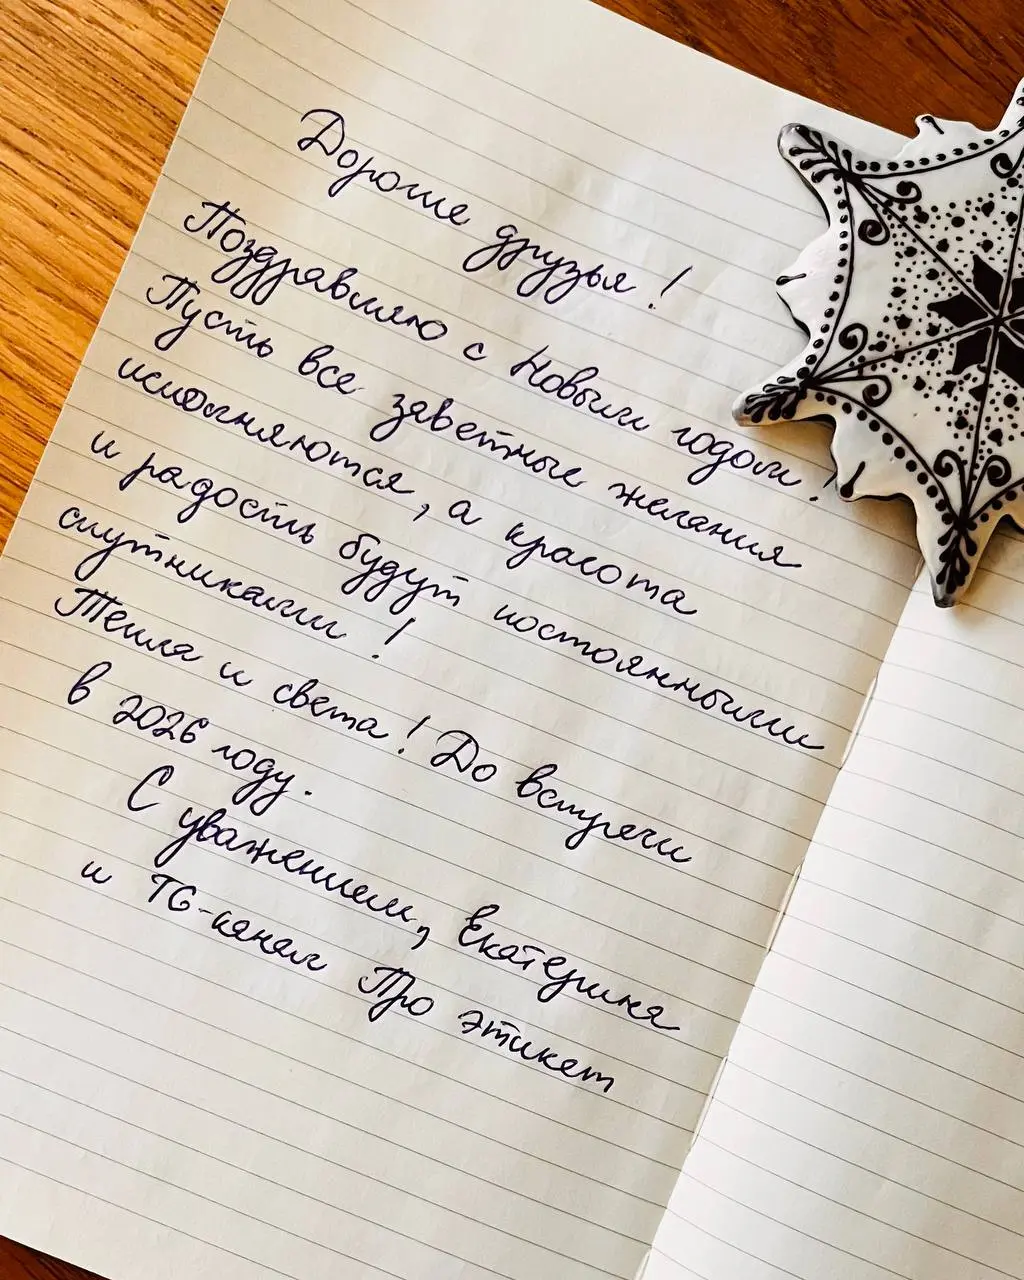 Дорогие друзья!
Поздравляю с Новым годом!
Пусть все заветные желания
исполняются, а красота
и радость будут постоянными
спутниками!
Тепла и света! До встречи
в 2026 году.
С уважением, Екатерина
и TG-канал Про этикет